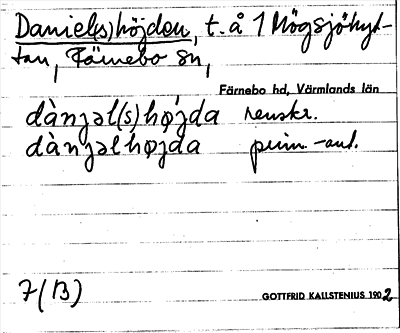 Daniel(s)höjden, t. å 1 Högsjöhyt-
tan, Färnebo sn,
Färnebo hd, Värmlands län
dànjəl(s)højda renskr.
dànjəlhøjda prim.-aut.
7(B)
GOTTFRID KALLSTENIUS 1902